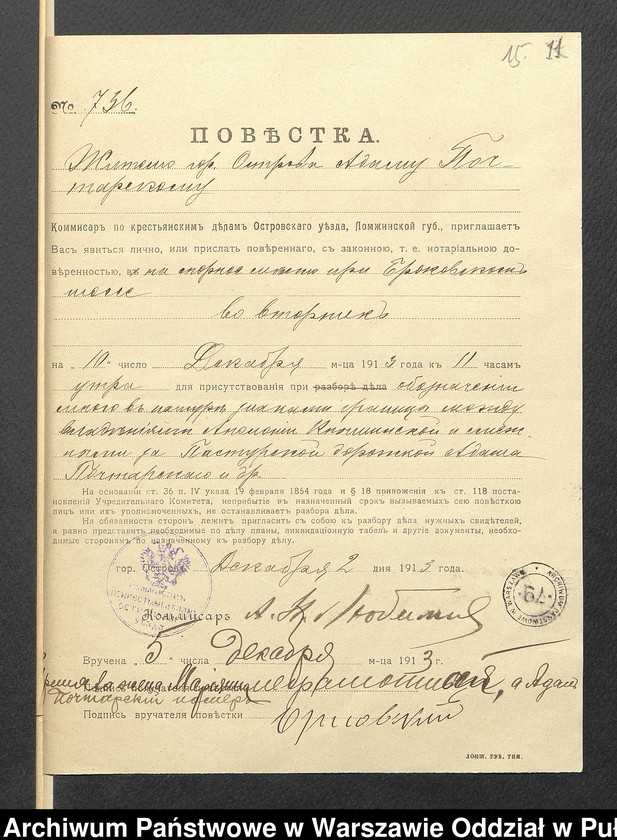 15. 11
№ 736.
ПОВѢСТКА.
Жителю гор. Острова Адаму Поч-
тарскому
Коммисаръ по крестьянским дѣламъ Островскаго уѣзда, Ломжинской губ., приглашаетъ
Васъ явиться лично, или прислать повѣреннаго, съ законною, т. е. нотаріальною до-
вѣренностью, на спорное мѣсто при Броковскомъ
шоссе
во вторникъ
на „10“ число Декабря м-ца 1913 года къ 11 часамъ
утра для присутствованія при разборѣ дѣла обозначеніи
въ натурѣ границы между
Аполоніи и
за Пастурской дорожкой Адама
Почтарскаго и др.
На основаніи ст. 36 п. IV указа 19 февраля 1864 года и § 18 приложенія къ ст. 118 поста-
новленій Учредительнаго Комитета, неприбытіе въ назначенный срокъ вызываемыхъ сею повѣсткою
лицъ или ихъ уполномоченныхъ, не останавливаетъ разбора дѣла.
На обязанности сторонъ лежитъ пригласить съ собою къ разбору дѣла нужныхъ свидѣтелей,
а равно представить необходимые по дѣлу планы, ликвидаціонную табель и другіе документы, необхо-
димые сторонамъ по данному къ разбору дѣлу.
гор. Островъ, Декабря 2 дня 1913 года.
Коммисаръ
ARCHIWUM PAŃSTWOWE W WARSZAWIE
Вручена „5“ числа Декабря м-ца 1913 г.
жена Марія неграмотная, а Адамъ
Почтарскій померъ
Подпись вручателя повѣстки
ЛОМЖ. ГУБ. ТИП.
Archiwum Państwowe w Warszawie Oddział w Puł